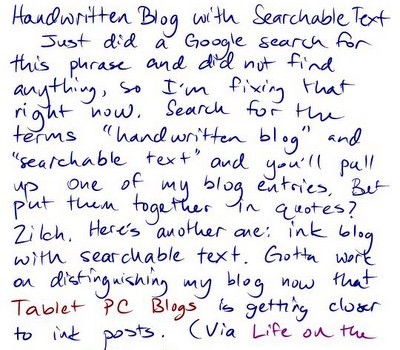 Handwritten Blog with Searchable Text
Just did a Google search for
this phrase and did not find
anything, so I'm fixing that
right now. Search for the
terms "handwritten blog" and
"searchable text" and you'll pull
up one of my blog entries. But
put them together in quotes?
Zilch. Here's another one: ink blog
with searchable text. Gotta work
on distinguishing my blog now that
Tablet PC Blogs is getting closer
to ink posts. (Via Life on the